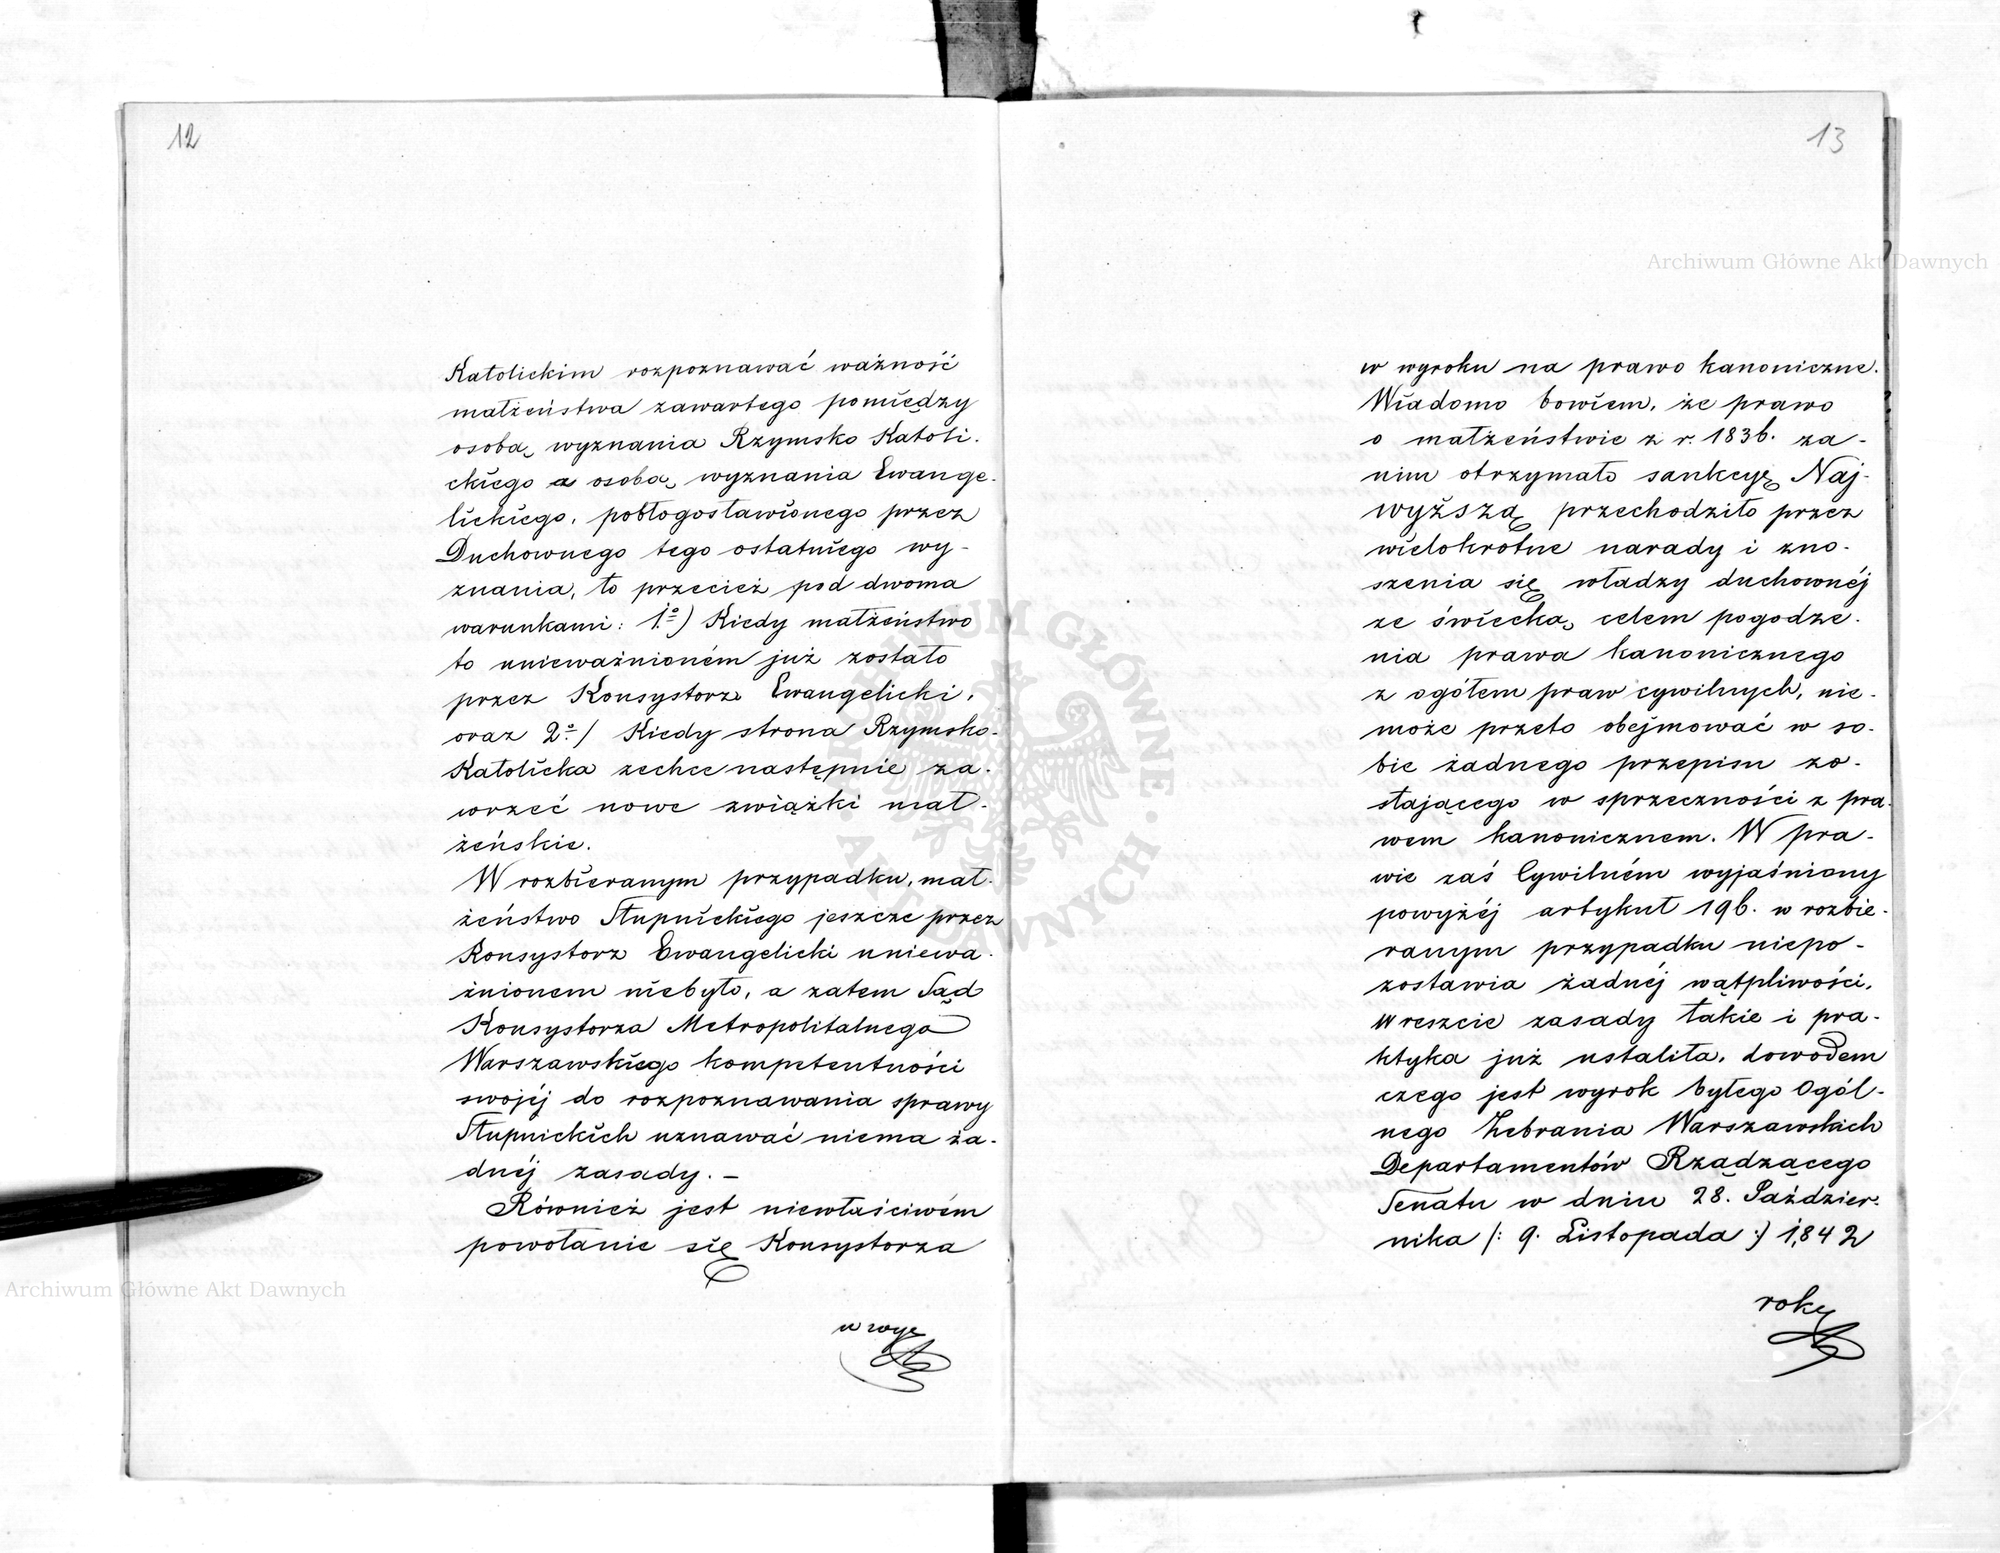 12
Katolickim rozpoznawać ważność
małżeństwa zawartego pomiędzy
osobą wyznania Rzymsko Katoli-
ckiego a osobą wyznania Ewange-
lickiego, pobłogosławionego przez
Duchownego tego ostatniego wy-
znania, to przecież pod dwoma
warunkami: 1.º) Kiedy małżeństwo
to unieważnioném już zostało
przez Konsystorz Ewangelicki,
oraz 2.º/ Kiedy strona Rzymsko-
Katolicka zechce następnie za-
wrzeć nowe związki mał-
żeńskie.
W rozbieranym przypadku, mał-
żeństwo Słupnickiego jeszcze przez
Konsystorz Ewangelicki uniewa-
żnionem niebyło, a zatem Sąd
Konsystorza Metropolitalnego
Warszawskiego kompetentności
swojéj do rozpoznawania sprawy
Słupnickich uznawać niema ża-
dnéj zasady. –
Również jest niewłaściwém
powołanie się Konsystorza
w wyr
13
w wyroku na prawo kanoniczne.
Wiadomo bowiem, że prawo
o małżeństwie z r. 1836. za-
nim otrzymało sankcyę Naj-
wyższą przechodziło przez
wielokrotne narady i zno-
szenia się władzy duchownéj
ze świecką celem pogodze-
nia prawa kanonicznego
z ogółem praw cywilnych, nie-
może przeto obejmować w so-
bie żadnego przepisu zo-
stającego w sprzeczności z pra-
wem kanonicznem. W pra-
wie zaś Cywilném wyjaśniony
powyżéj artykuł 196. w rozbie-
ranym przypadku niepo-
zostawia żadnéj wątpliwości.
Wreszcie zasady takie i pra-
ktyka już ustaliła, dowodem
czego jest wyrok byłego Ogól-
nego Zebrania Warszawskich
Departamentów Rządzącego
Senatu w dniu 28. Paździer-
nika /: 9. Listopada :/ 1842
roku
Archiwum Główne Akt Dawnych
Archiwum Główne Akt Dawnych
ARCHIWUM GŁÓWNE AKT DAWNYCH